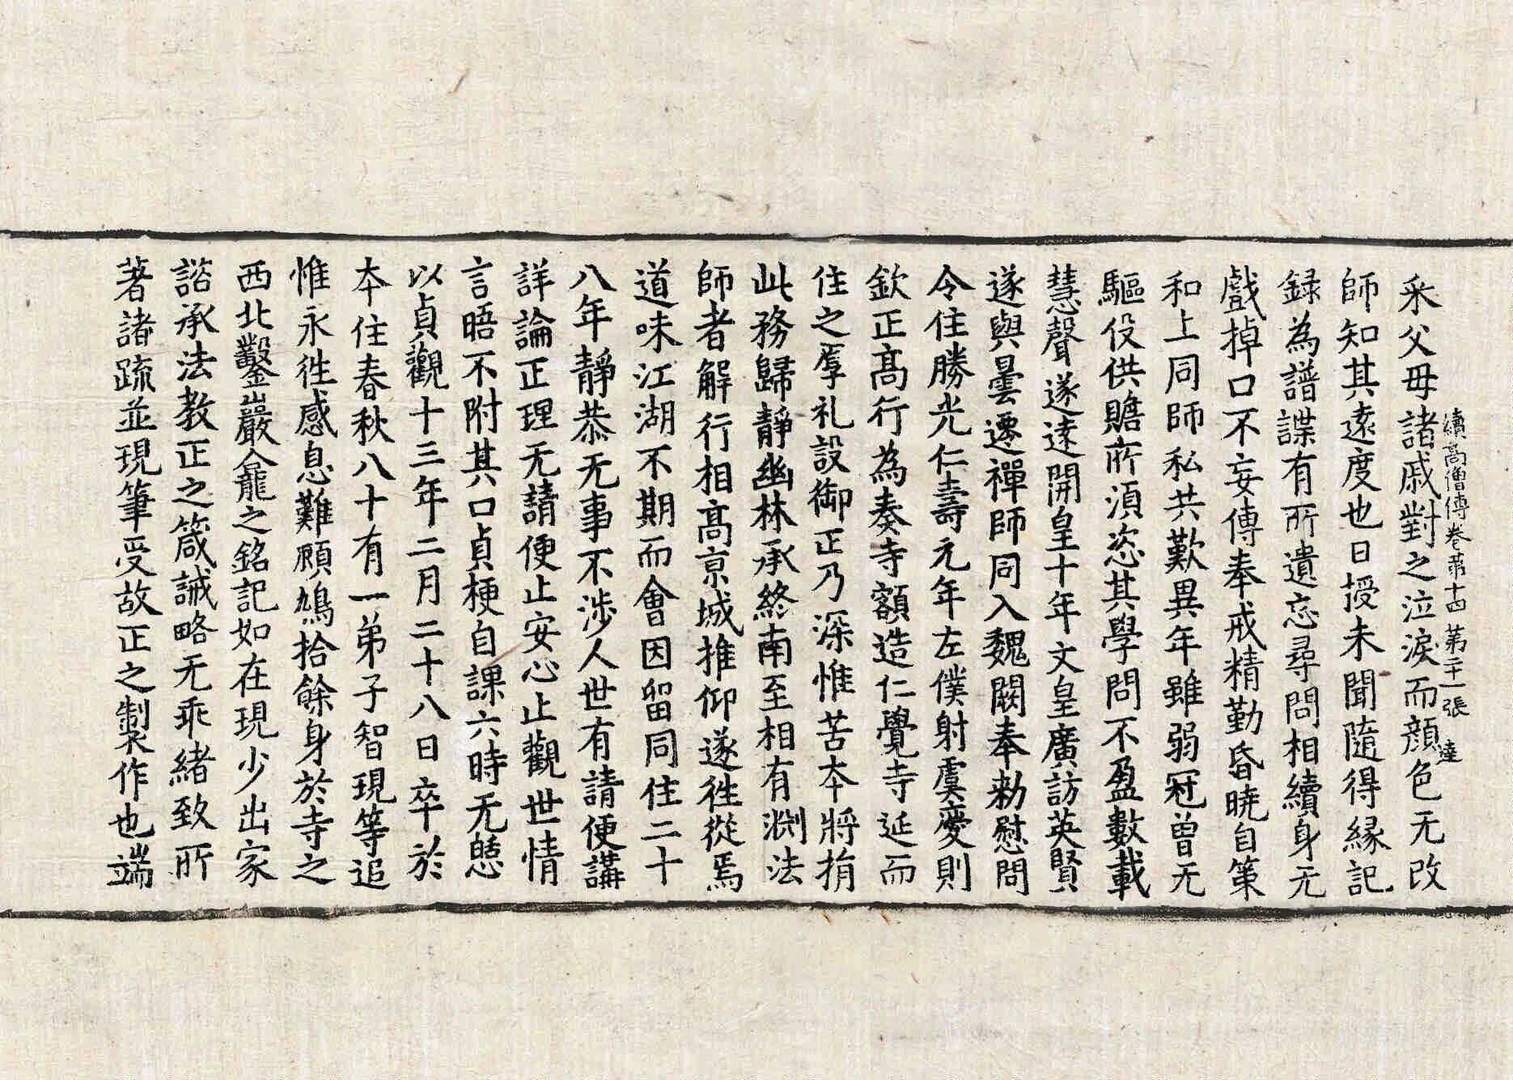 續高僧傳卷第十四 第二十一張 達
采父母諸戚對之泣淚而顏色无改
師知其遠度也日授未聞隨得緣記
録為譜諜有所遺忘尋問相續身无
戲掉口不妄傳奉戒精勤昏曉自策
和上同師私共歎異年雖弱冠曾无
驅役供贍所須恣其學問不盈數載
慧聲遂遠開皇十年文皇廣訪英賢
遂與曇遷禪師同入魏闕奉勑慰問
令住勝光仁壽元年左僕射虞慶則
欽正高行為奏寺額造仁覺寺延而
住之厚礼設御正乃深惟苦本將捐
此務歸靜幽林承終南至相有渕法
師者解行相高京城推仰遂往從焉
道味江湖不期而會因留同住二十
八年靜恭无事不涉人世有請便講
詳論正理无請便止安心止觀世情
言晤不附其口貞梗自課六時无憩
以貞觀十三年二月二十八日卒於
本住春秋八十有一弟子智現等追
惟永往感息難顧鳩拾餘身於寺之
西北鑿巖龕之銘記如在現少出家
諮承法教正之箴誡略无乖緒致所
著諸疏並現筆受故正之製作也端